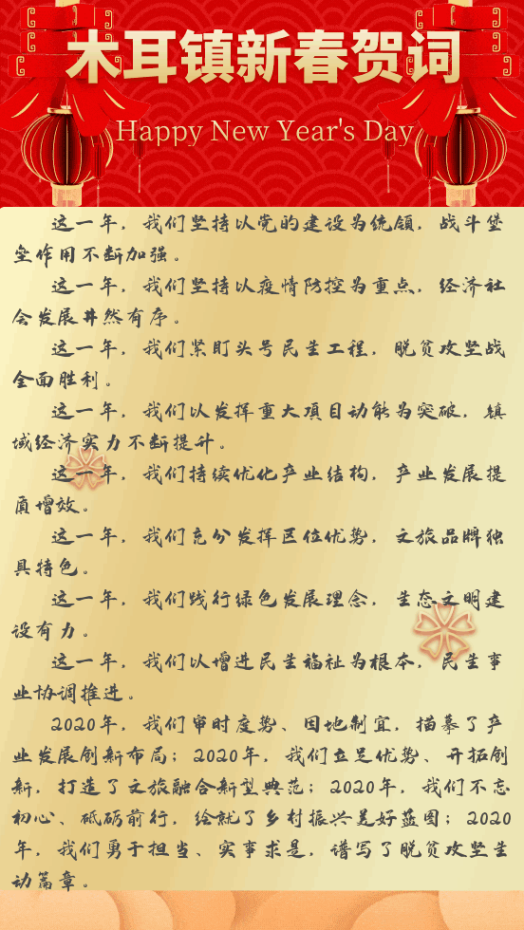 木耳镇新春贺词
Happy New Year's Day
这一年，我们坚持以党的建设为统领，战斗堡
垒作用不断加强。
这一年，我们坚持以疫情防控为重点，经济社
会发展井然有序。
这一年，我们紧盯头号民生工程，脱贫攻坚战
全面胜利。
这一年，我们以发挥重大项目动能为突破，镇
域经济实力不断提升。
这一年，我们持续优化产业结构，产业发展提
质增效。
这一年，我们充分发挥区位优势，文旅品牌独
具特色。
这一年，我们践行绿色发展理念，生态文明建
设有力。
这一年，我们以增进民生福祉为根本，民生事
业协调推进。
2020年，我们审时度势、因地制宜，描摹了产
业发展创新布局；2020年，我们立足优势、开拓创
新，打造了文旅融合新型典范；2020年，我们不忘
初心、砥砺前行，绘就了乡村振兴美好蓝图；2020
年，我们勇于担当、实事求是，谱写了脱贫攻坚生
动篇章。